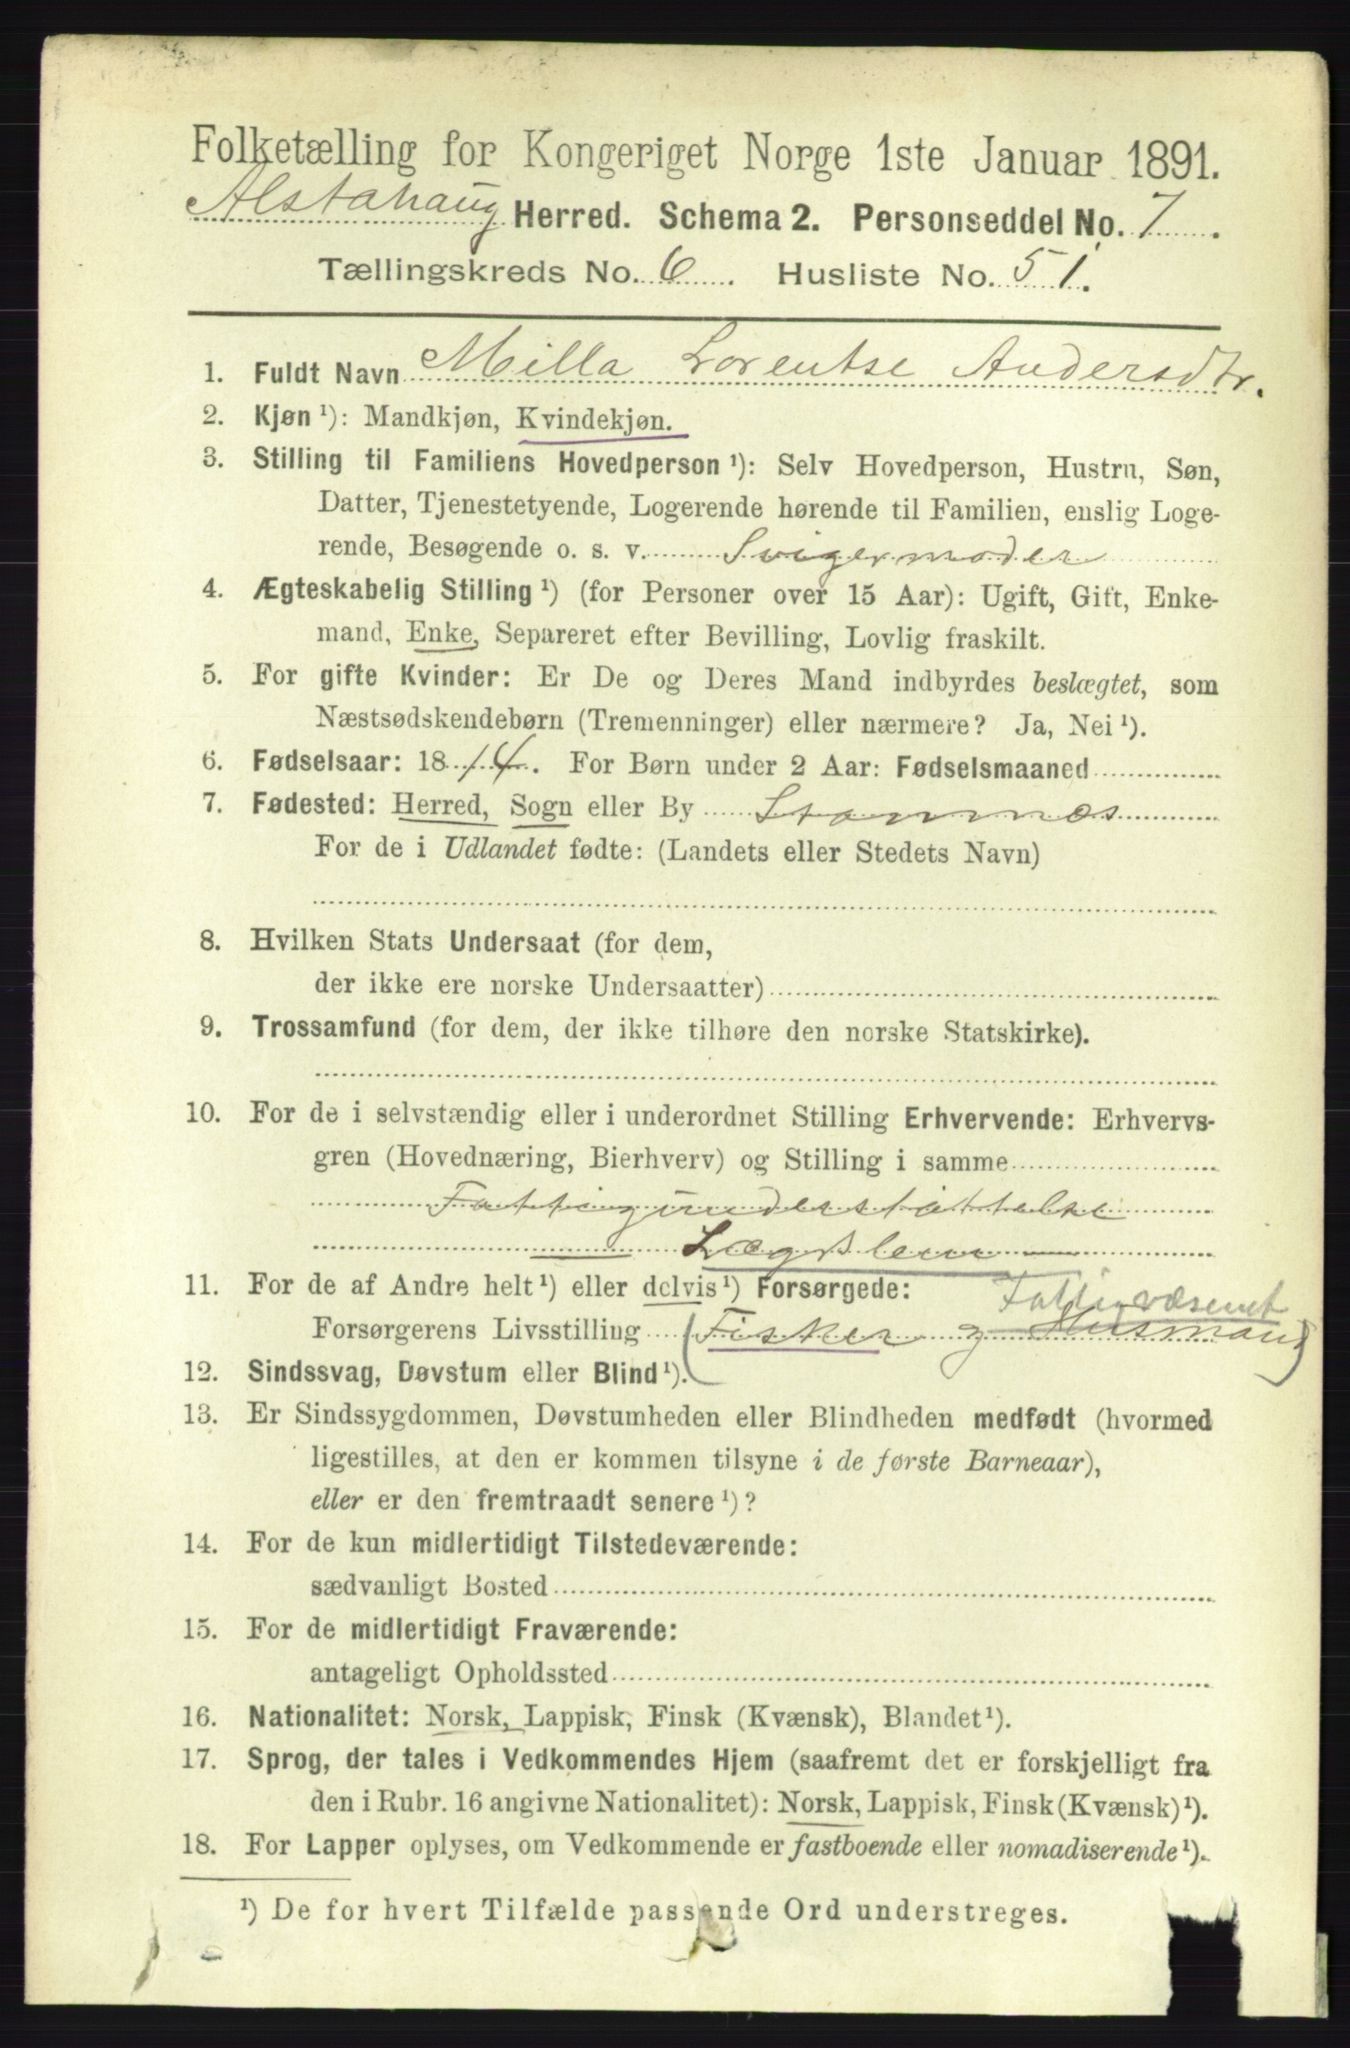 Folketælling for Kongeriget Norge 1ste Januar 1891.
Alstahaug Herred. Schema 2. Personseddel No. 7.
Tællingskreds No. 6. Husliste No. 51.
1. Fuldt Navn Milla Lorentse Andersdtr.
2. Kjøn ¹): Mandkjøn, Kvindekjøn.
3. Stilling til Familiens Hovedperson ¹): Selv Hovedperson, Hustru, Søn,
Datter, Tjenestetyende, Logerende hørende til Familien, enslig Loge-
rende, Besøgende o. s. v. Svigermoder
4. Ægteskabelig Stilling ¹) (for Personer over 15 Aar): Ugift, Gift, Enke-
mand, Enke, Separeret efter Bevilling, Lovlig fraskilt.
5. For gifte Kvinder: Er De og Deres Mand indbyrdes beslægtet, som
Næstsødskendebørn (Tremenninger) eller nærmere? Ja, Nei ¹).
6. Fødselsaar: 1814. For Børn under 2 Aar: Fødselsmaaned
7. Fødested: Herred, Sogn eller By Stamnæs
For de i Udlandet fødte: (Landets eller Stedets Navn)
8. Hvilken Stats Undersaat (for dem,
der ikke ere norske Undersaatter)
9. Trossamfund (for dem, der ikke tilhøre den norske Statskirke).
10. For de i selvstændig eller i underordnet Stilling Erhvervende: Erhvervs-
gren (Hovednæring, Bierhverv) og Stilling i samme
Fattigunderstøttelse
Lægslem
11. For de af Andre helt ¹) eller delvis ¹) Forsørgede: Fattigvæsenet
Forsørgerens Livsstilling (Fisker og Husmand)
12. Sindssvag, Døvstum eller Blind ¹).
13. Er Sindssygdommen, Døvstumheden eller Blindheden medfødt (hvormed
ligestilles, at den er kommen tilsyne i de første Barneaar),
eller er den fremtraadt senere ¹)?
14. For de kun midlertidigt Tilstedeværende:
sædvanligt Bosted
15. For de midlertidigt Fraværende:
antageligt Opholdssted
16. Nationalitet: Norsk, Lappisk, Finsk (Kvænsk), Blandet ¹).
17. Sprog, der tales i Vedkommendes Hjem (saafremt det er forskjelligt fra
den i Rubr. 16 angivne Nationalitet): Norsk, Lappisk, Finsk (Kvænsk) ¹).
18. For Lapper oplyses, om Vedkommende er fastboende eller nomadiserende ¹).
¹) De for hvert Tilfælde passende Ord understreges.